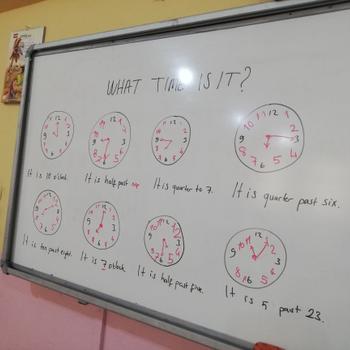 WHAT TIME IS IT?
It is 10 o'clock.
It is half past
It is quarter to 7.
It is quarter past six.
It is ten past eight.
It is 7 o'clock.
It is half past five.
It is 5 past 23.